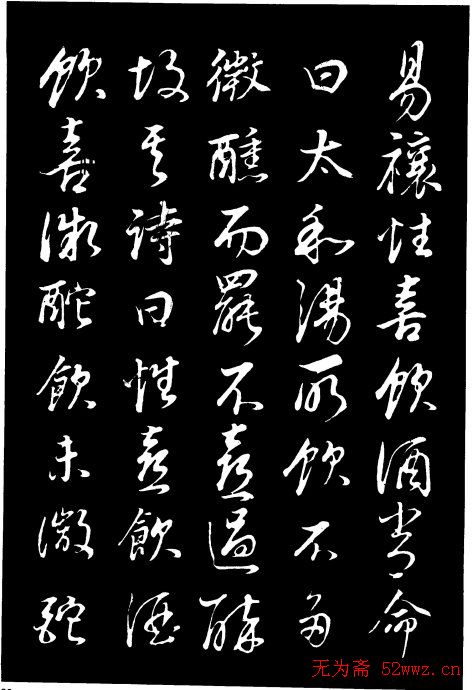 易禳性喜飲酒嘗命
曰太和湯所飲不多
微醺而罷不喜過醉
故其詩曰性喜飲酒
飲喜微酡飲未微酡
无为斋 52wwz.cn